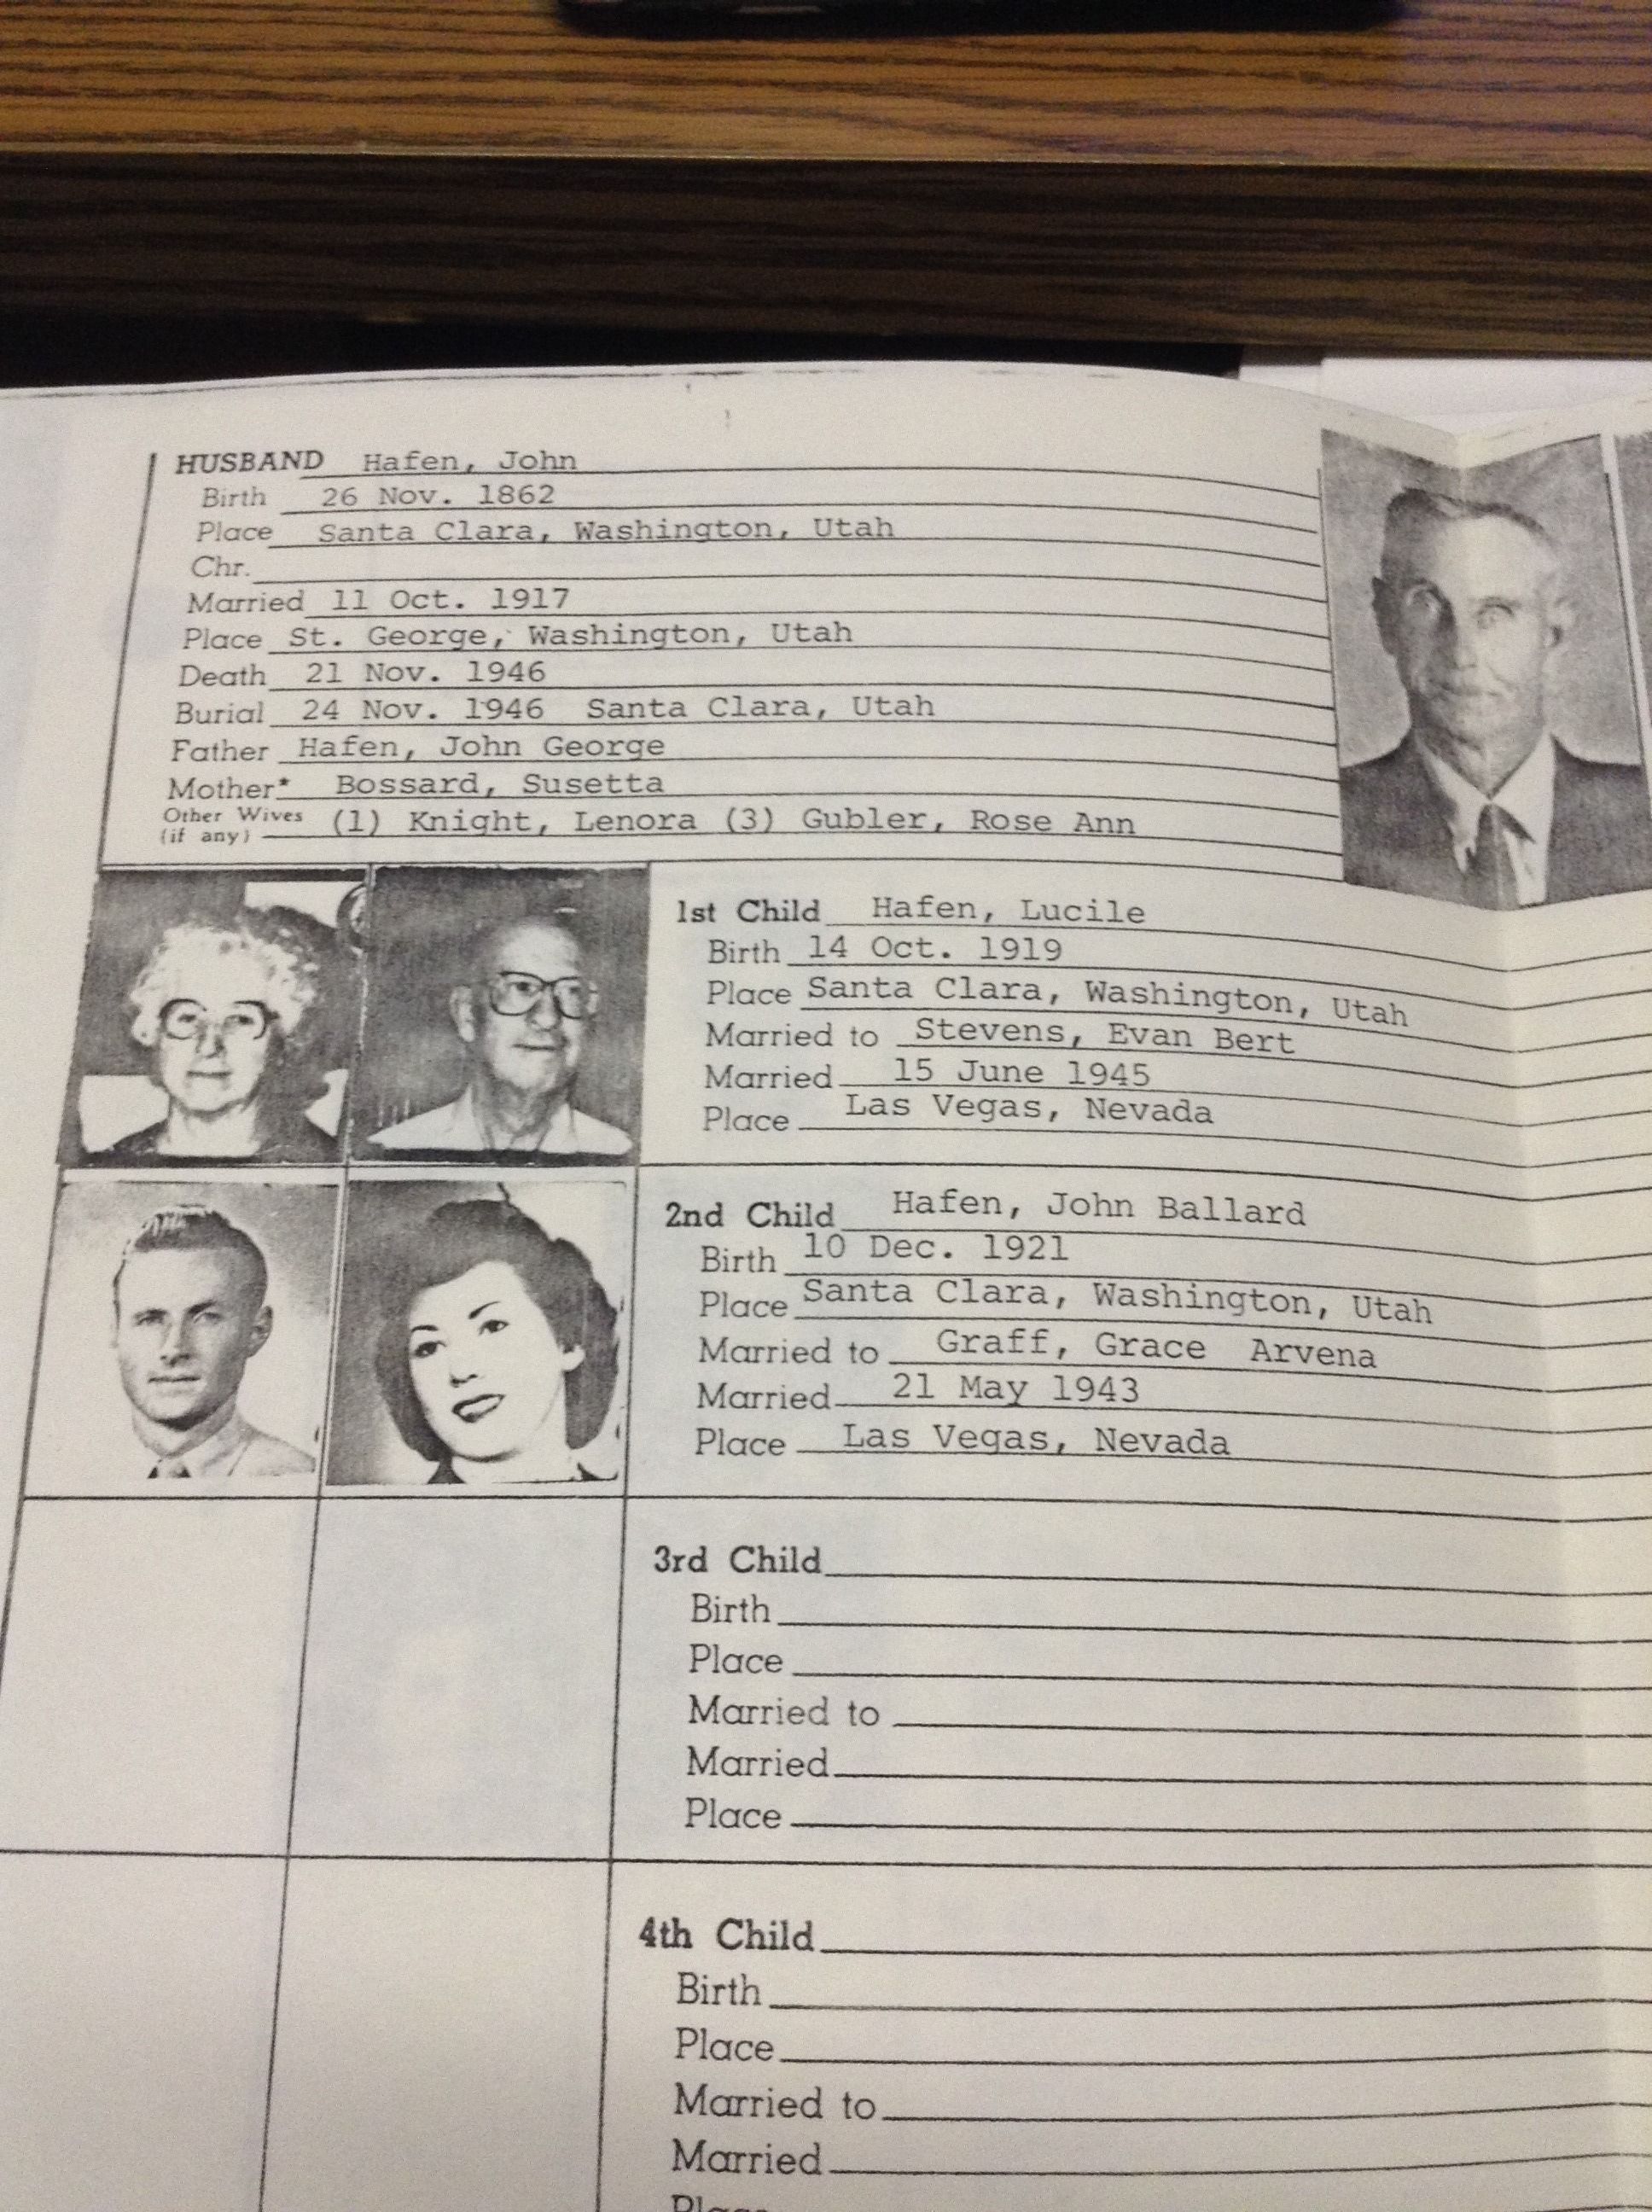 HUSBAND Hafen, John
Birth 26 Nov. 1862
Place Santa Clara, Washington, Utah
Chr.
Married 11 Oct. 1917
Place St. George, Washington, Utah
Death 21 Nov. 1946
Burial 24 Nov. 1946 Santa Clara, Utah
Father Hafen, John George
Mother* Bossard, Susetta
Other Wives (if any) (1) Knight, Lenora (3) Gubler, Rose Ann
1st Child Hafen, Lucile
Birth 14 Oct. 1919
Place Santa Clara, Washington, Utah
Married to Stevens, Evan Bert
Married 15 June 1945
Place Las Vegas, Nevada
2nd Child Hafen, John Ballard
Birth 10 Dec. 1921
Place Santa Clara, Washington, Utah
Married to Graff, Grace Arvena
Married 21 May 1943
Place Las Vegas, Nevada
3rd Child
Birth
Place
Married to
Married
Place
4th Child
Birth
Place
Married to
Married
Place